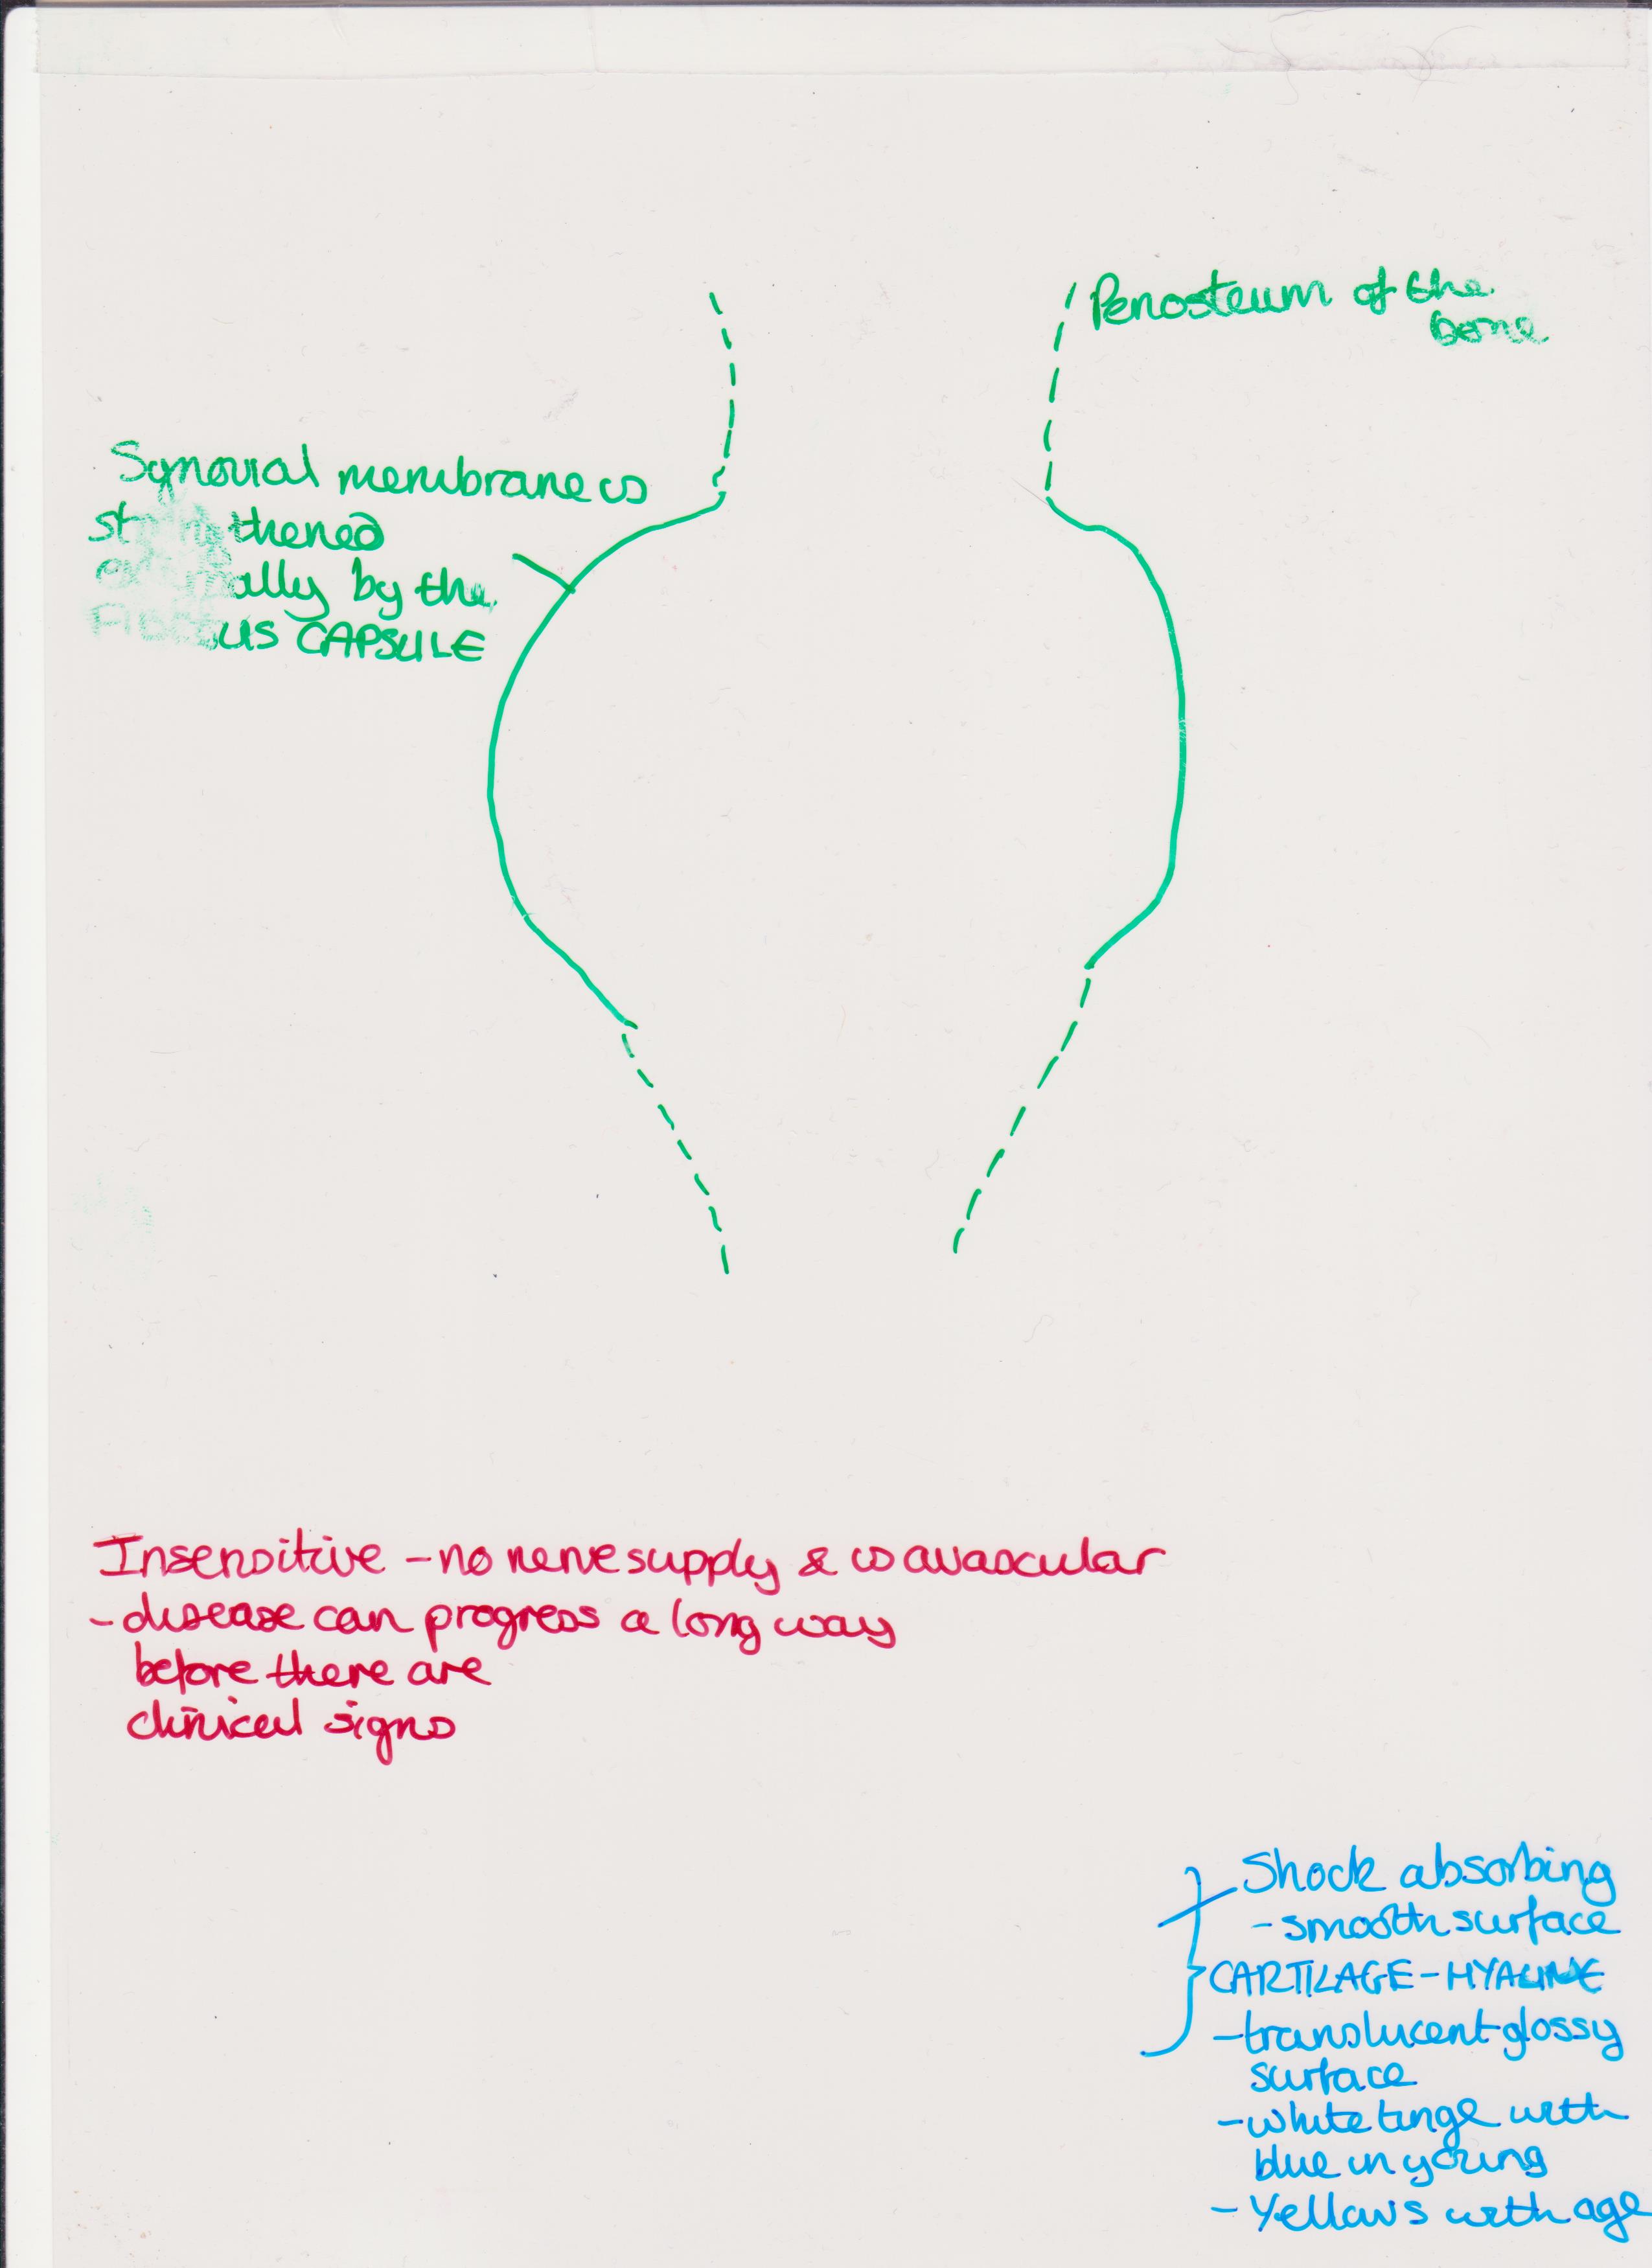 Periosteum of the
bone
Synovial membrane is
strengthened
externally by the
FIBROUS CAPSULE
Insensitive - no nerve supply & is avascular
- disease can progress a long way
before there are
clinical signs
Shock absorbing
- smooth surface
CARTILAGE - HYALINE
- translucent glossy
surface
- white tinge with
blue in young
- Yellows with age